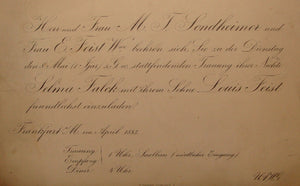 Herr und Frau M. J. Sondheimer und
Frau E. Feist Wwe beehren sich, Sie zu der Dienstag
den 8. Mai (1 Ijar) d. G. w. stattfindenden Trauung ihrer Nichte
Selma Falck mit ihrem Sohne Louis Feist
freundlichst einzuladen.
Frankfurt a/M. im April 1883.
Trauung
Empfang } 1 Uhr, Saalbau (westlicher Eingang)
Diner 4 Uhr